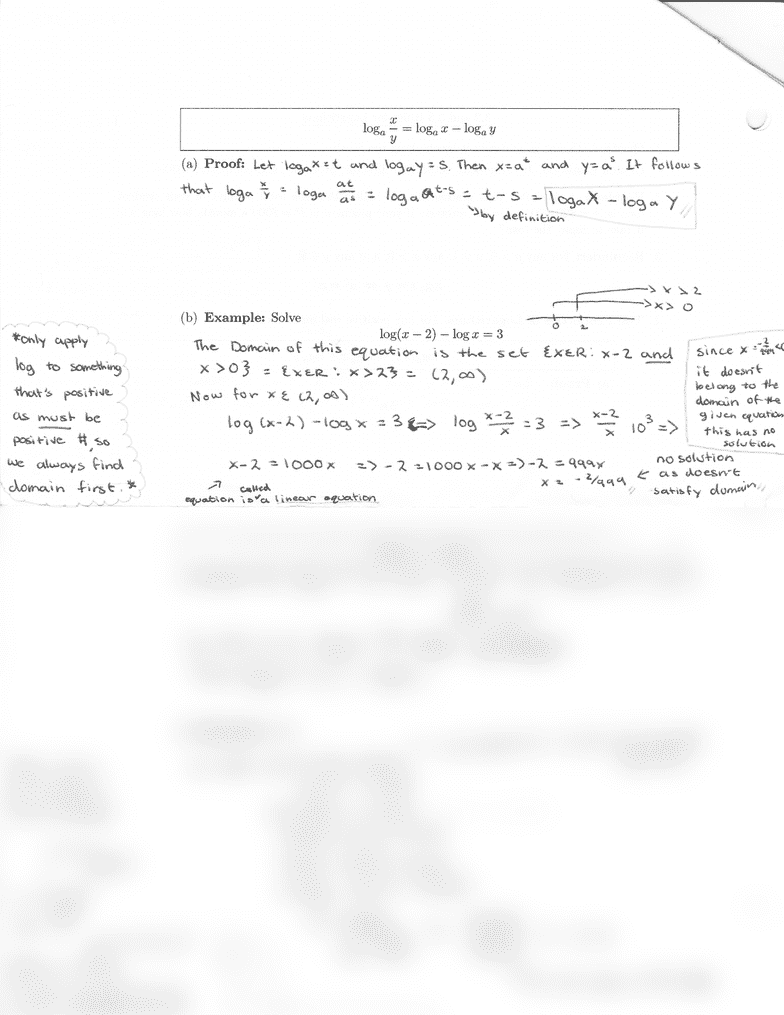 log_a x/y = log_a x − log_a y
(a) Proof: Let log_a x = t and log_a y = s. Then x = a^t and y = a^s. It follows
that log_a x/y = log_a at/as = log_a a^t-s = t-s = log_a x - log_a y
↘ by definition
→ x > 2
→ x > 0
0 2
(b) Example: Solve
log(x − 2) − log x = 3
The Domain of this equation is the set {x∈R: x-2 and
x>0} = {x∈R: x>2} = (2,∞)
Now for x ∈ (2,∞)
log (x-2) - log x = 3 <=> log x-2/x = 3 => x-2/x 10^3 =>
x-2 = 1000x => -2 = 1000x - x => -2 = 999x
x = -2/999
↗ called
equation is a linear equation
no solution
← as doesn't
satisfy domain
*only apply
log to something
that's positive
as must be
positive #, so
we always find
domain first.*
since x = -2/999 <
it doesn't
belong to the
domain of the
given equation
this has no
solution